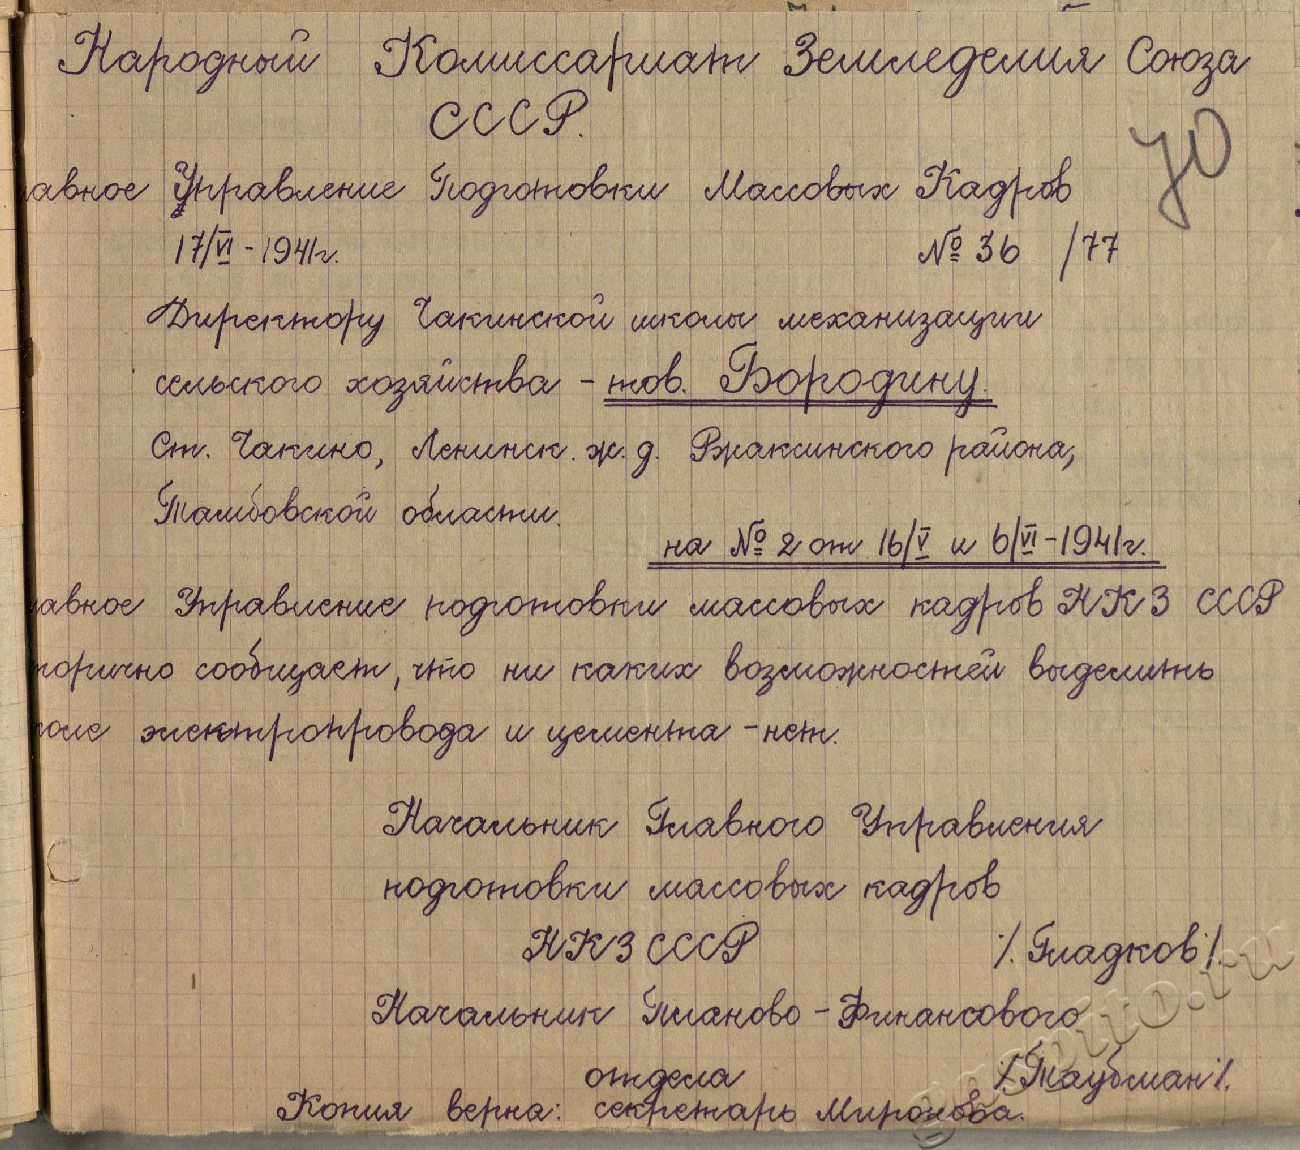 Народный Комиссариат Земледелия Союза
СССР.
70
лавное Управление Подготовки Массовых Кадров
17/VI - 1941г. № 36 /77
Директору Чакинской школы механизации
сельского хозяйства - тов. Бородину.
Ст. Чакино, Ленинск. ж. д. Ржаксинского района,
Тамбовской области.
на № 2 от 16/V и 6/VI - 1941г.
лавное Управление подготовки массовых кадров НКЗ СССР
торично сообщает, что ни каких возможностей выделить
коле электропровода и цемента - нет.
Начальник Главного Управления
подготовки массовых кадров
НКЗ СССР /. Гладков /.
Начальник Планово - Финансового
отдела /. Таубман /.
Копия верна: секретарь Миронова.
gaspito.ru